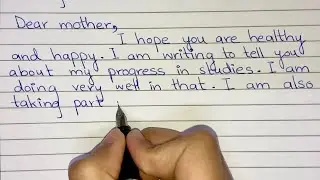 Dear mother,
I hope you are healthy
and happy. I am writing to tell you
about my progress in studies. I am
doing very well in that. I am also
taking part